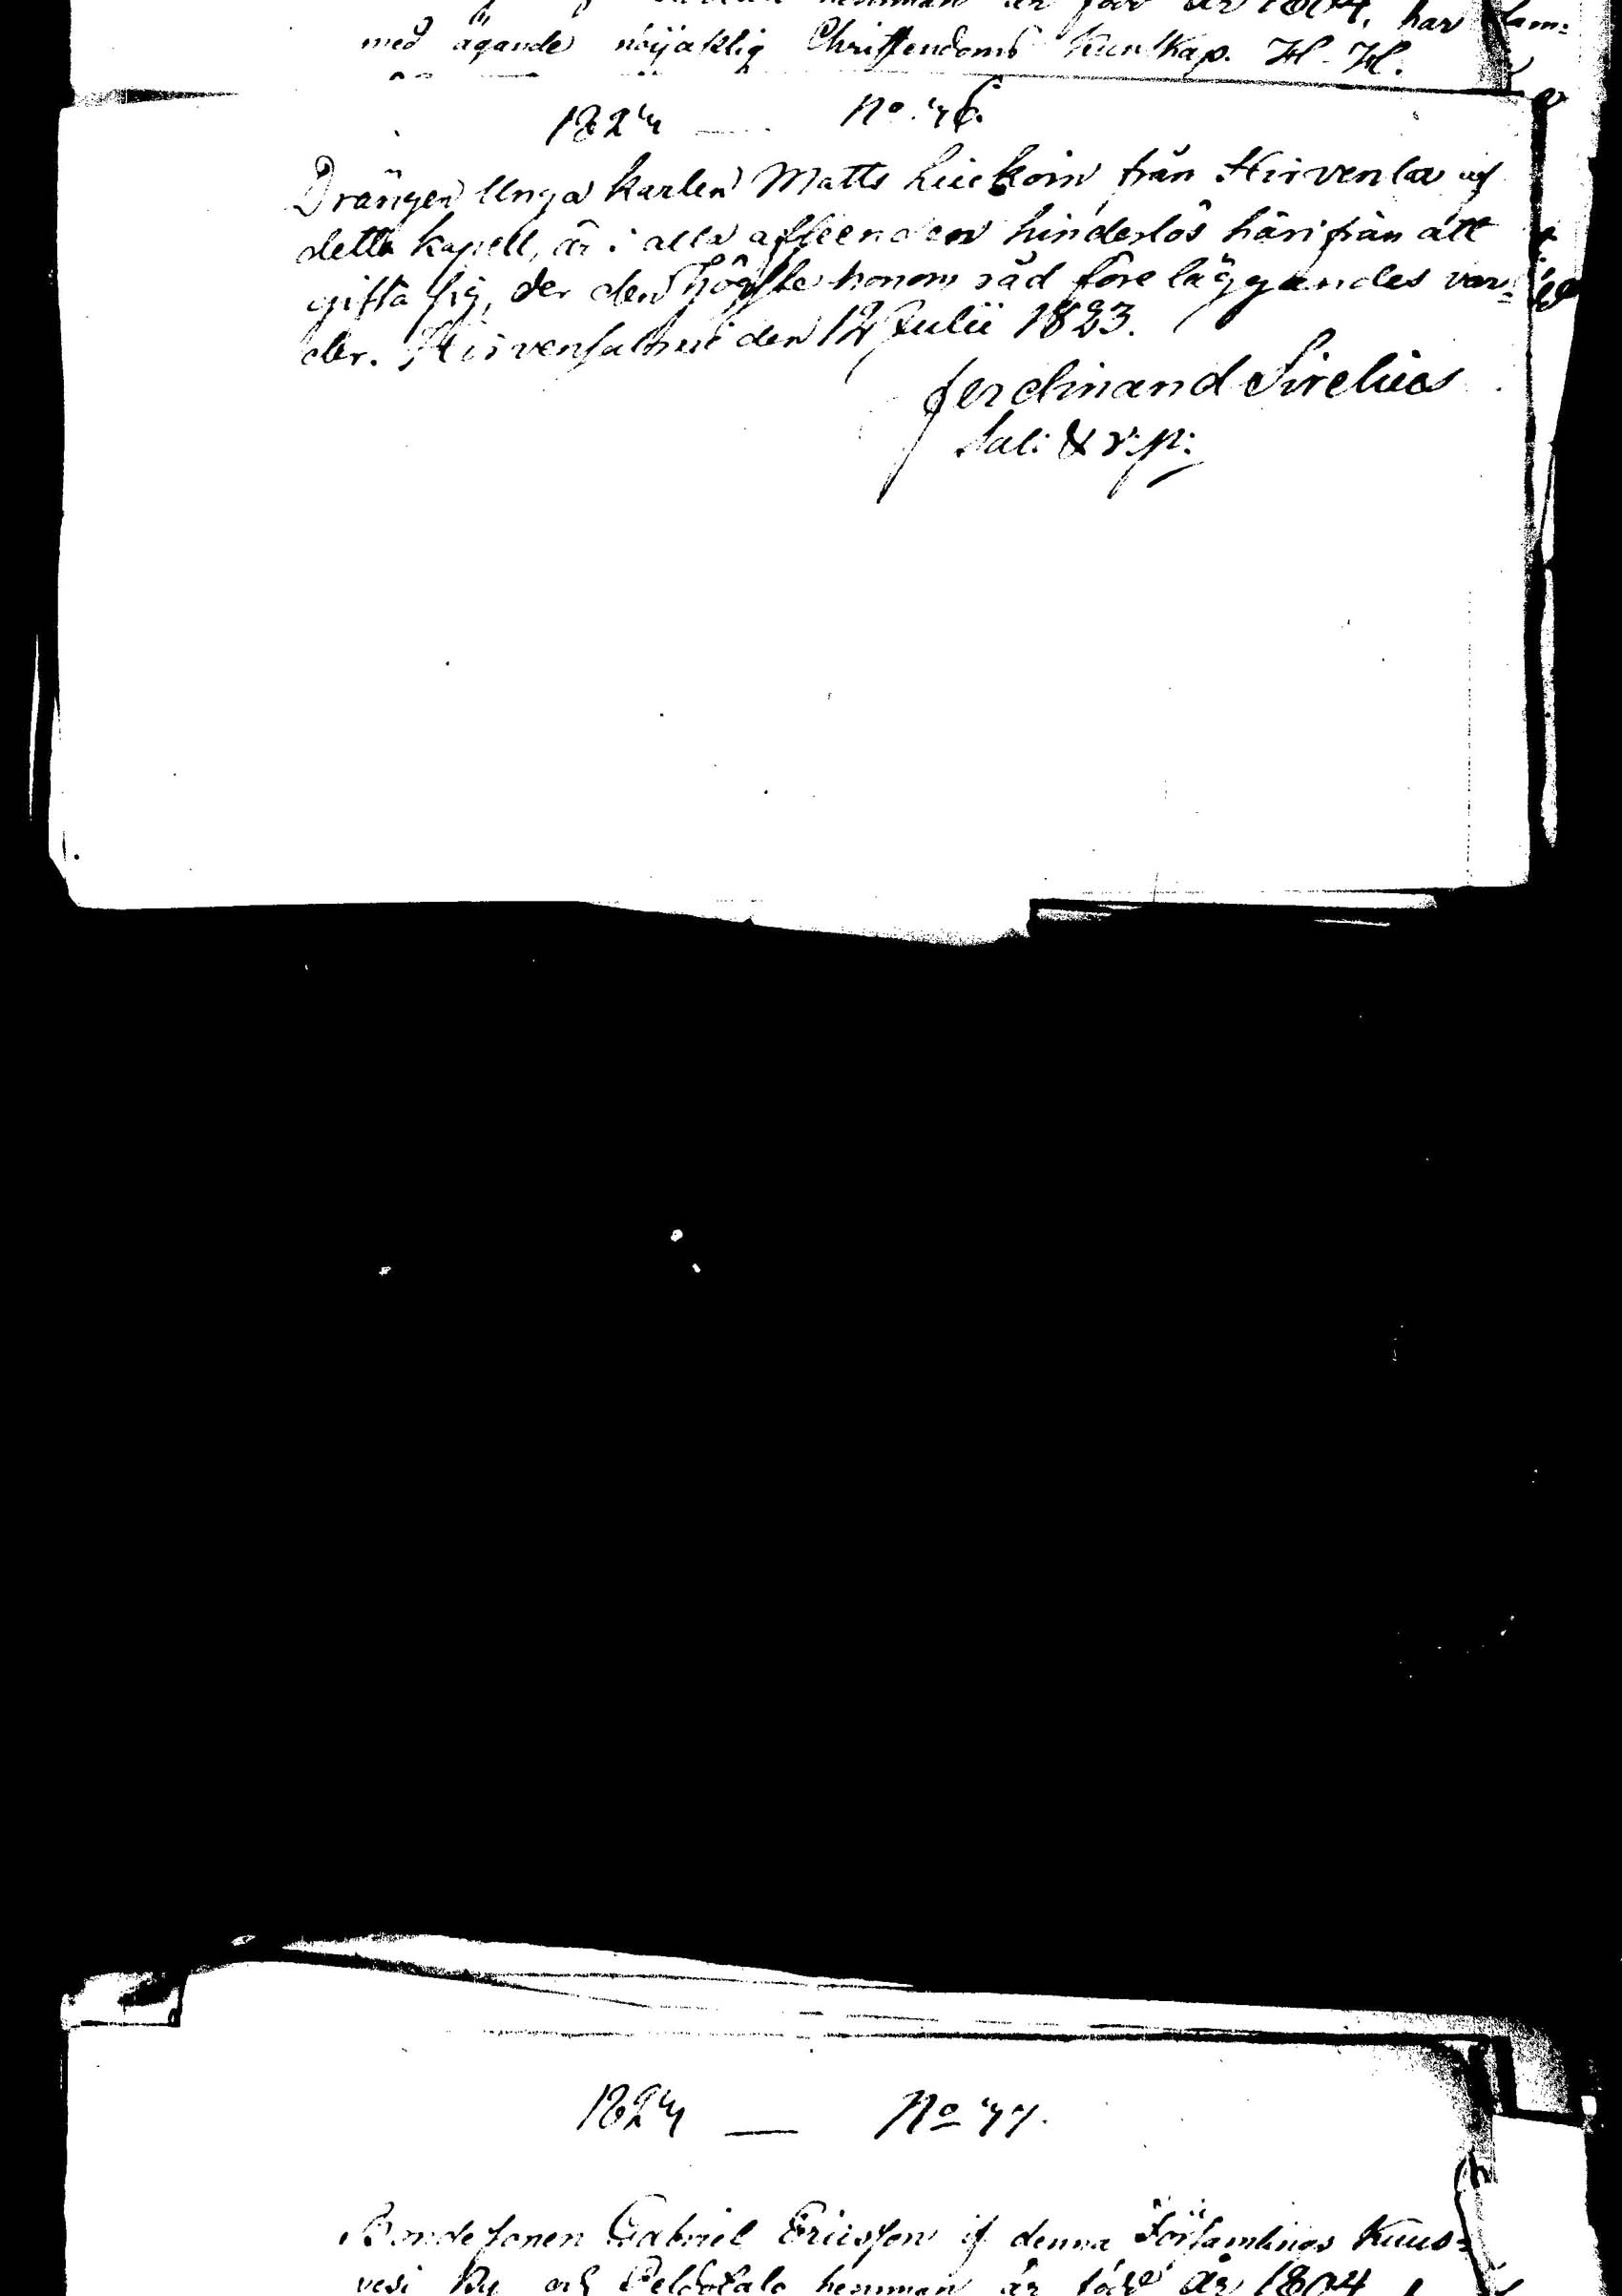 hemman är född år 1804, har sam=
med ägande nöÿaktig Christendoms kunskap. H. H.
1824 — No. 76.
Drängen Unga karlen Matts Liukoin, från Hirvenla af
detta kapell, är i alla afseenden hinderlös härifrån att
gifta sig, der den högste honom råd föreläggandes var=
der. Hirvensalmi den 12 Julii 1823.
Ferdinand Sirelius
Sac: & v: p:
1824 — No 77.
Bondesonen Gabriel Ericsson if denna Församlings Kuus=
vesi By och Peldotalo hemman är född år 1804